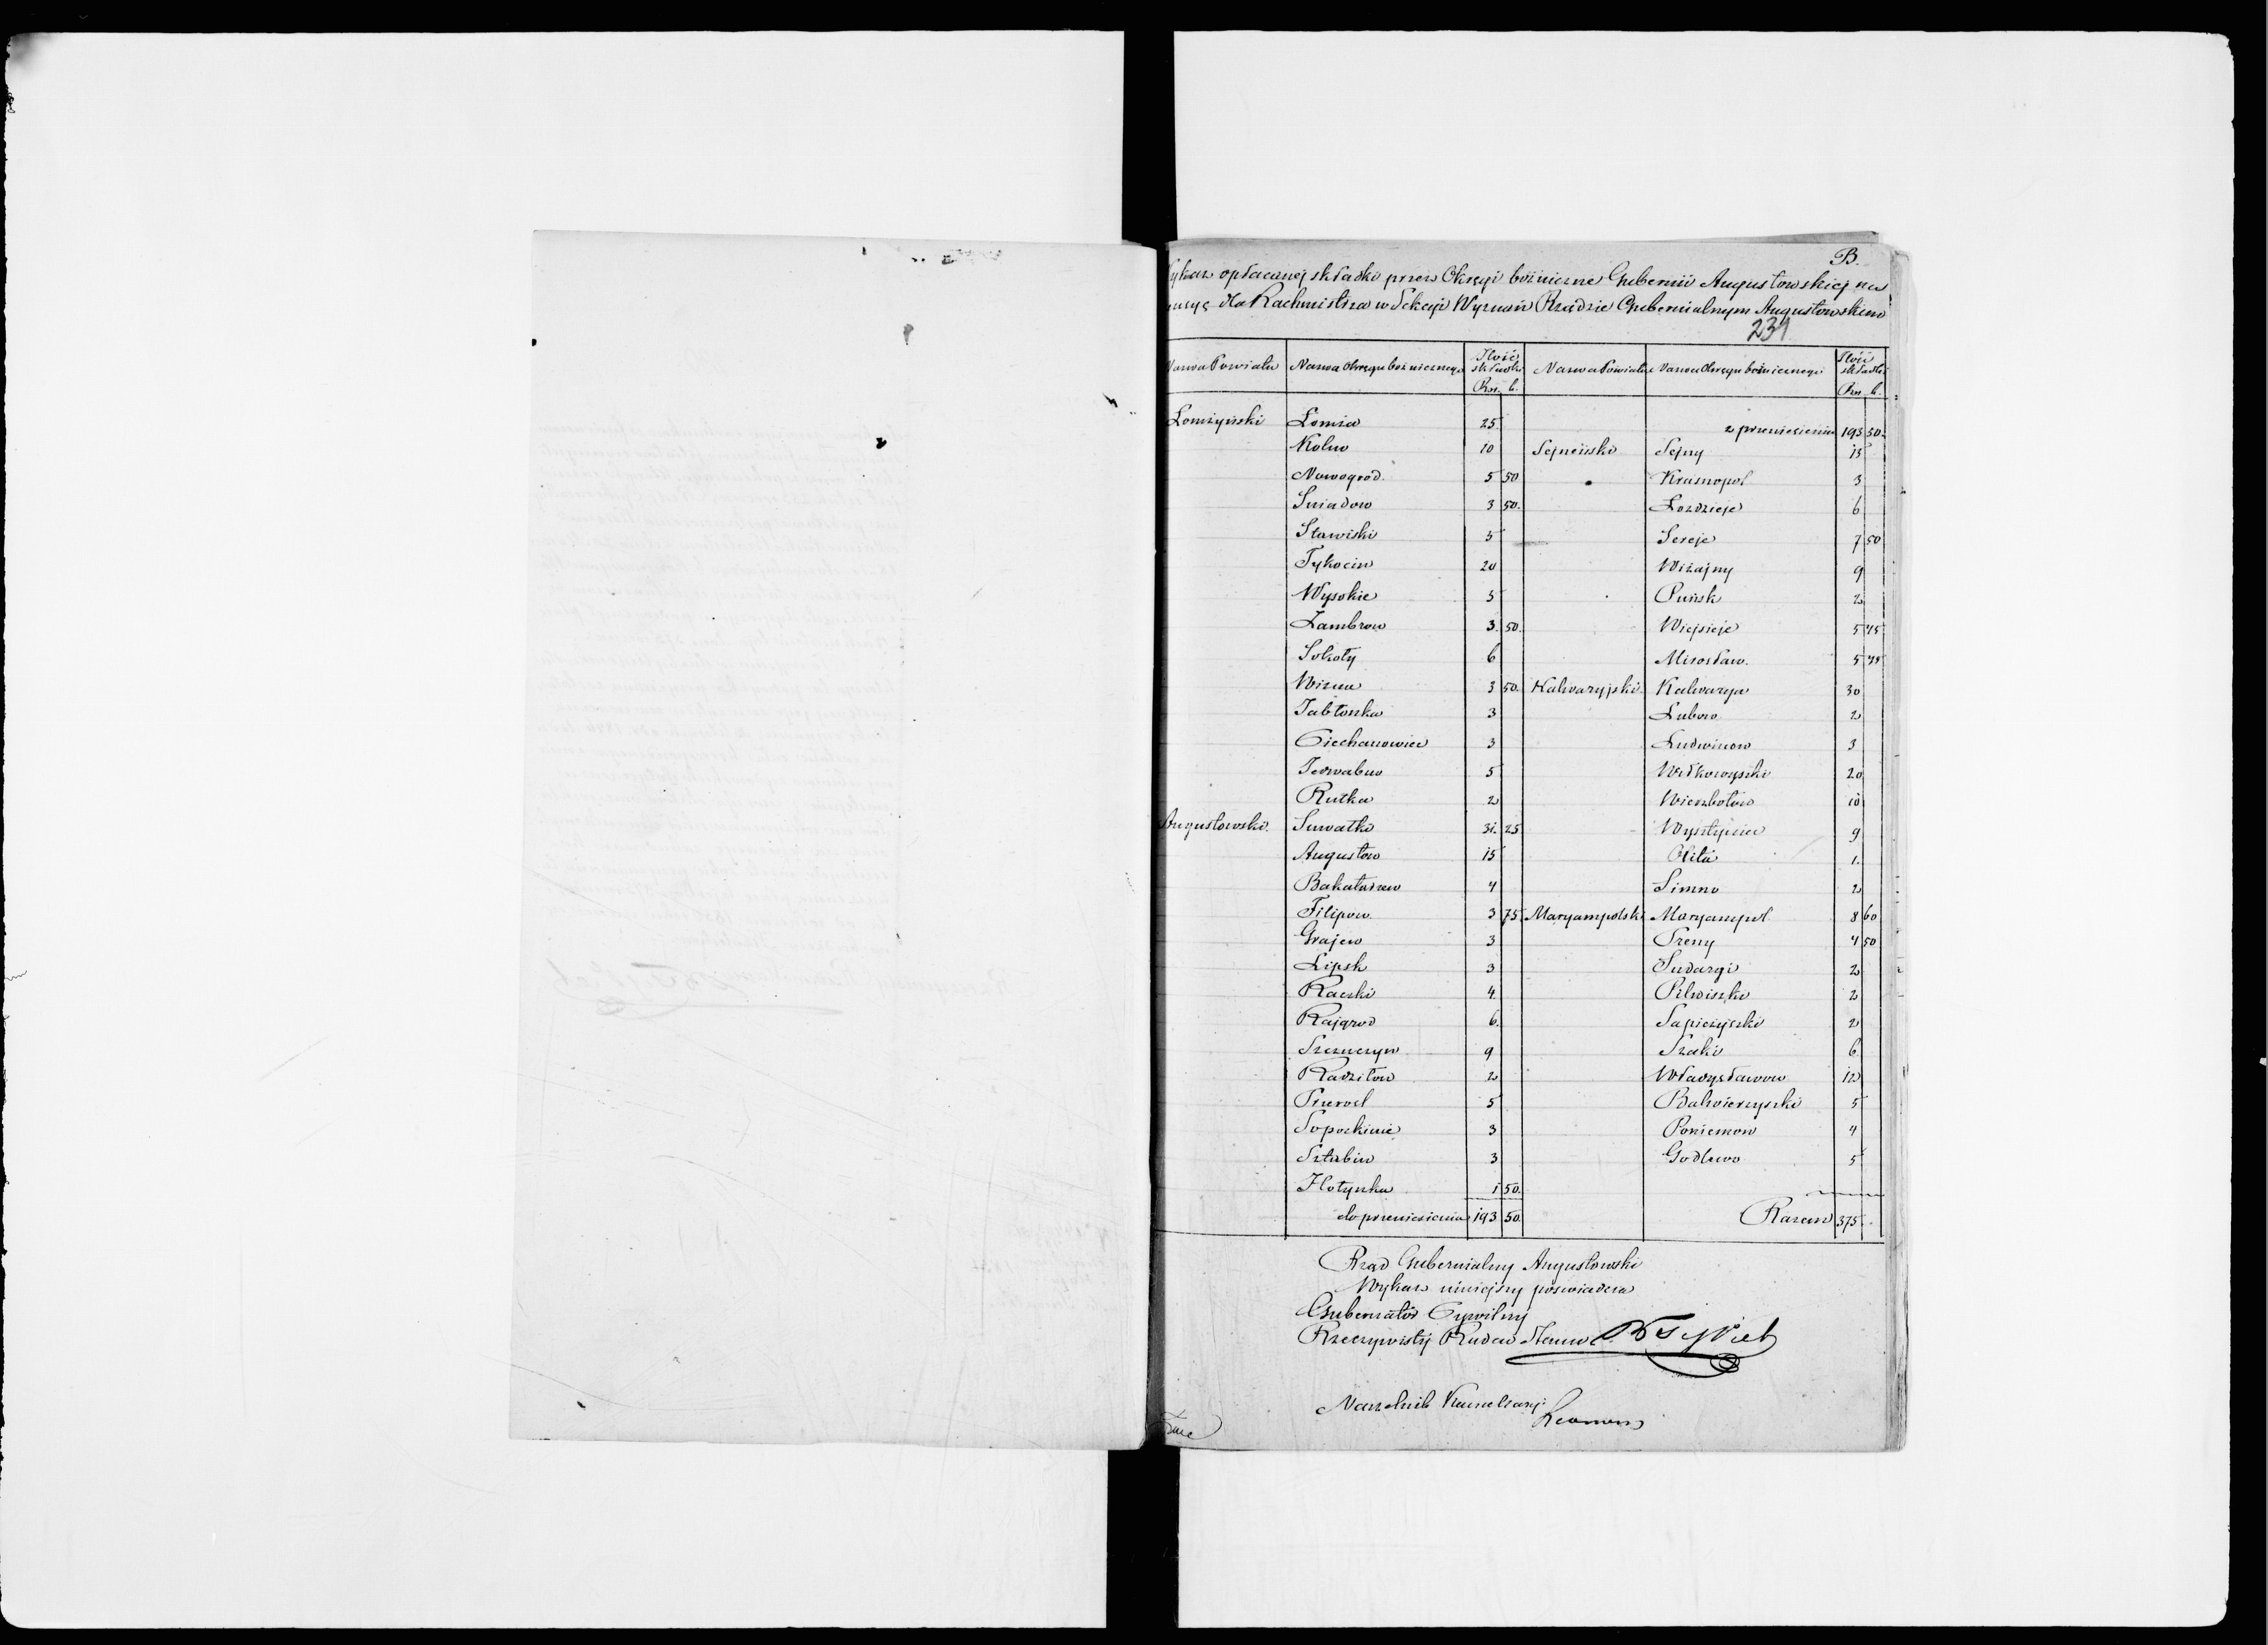 B.
Wykaz opłacanej składki przez Okręgi bóżniczne Gubernii Augustowskiej na
pensyę dla Rachmistrza w Sekcyi Wyznań Rządzie Gubernialnym Augustowskim
231
Nazwa Powiatu | Nazwa Okręgu bożnicznego | Ilość składki Rsr. k. | Nazwa Powiatu | Nazwa Okręgu bóżnicznego | Ilość składki Rsr. k.
Łomżyński | Łomża | 25 | | z przeniesienia | 193 50.
Kolno | 10 | Sejneński | Sejny | 15
Nowogrod. | 5 50 | | Krasnopol | 3
Sniadow | 3 50. | | Łozdzieje | 6
Stawiski | 5 | | Sereje | 7 50
Tykocin | 20 | | Wiżajny | 9
Wysokie | 5 | | Puńsk | 2
Zambrow | 3. 50. | | Wiejsieje | 5 75
Sokoły | 6 | | Mirosław. | 5 75
Wizna | 3 50. | Kalwaryjski. | Kalwarya | 30
Jabłonka | 3 | | Lubow | 2
Ciechanowiec | 3 | | Ludwinow | 3
Jedwabno | 5 | | Wiłkowyszki | 20
Rutka | 2 | | Wierzbołow | 10
Augustowski. | Suwałki | 31. 25 | | Wysztyniec | 9
Augustow | 15 | | Olita | 1.
Bakałarzew | 4 | | Simno | 2
Filipow. | 3 75. | Maryampolski | Maryampol | 8 60
Grajewo | 3 | | Preny | 4 50
Lipsk | 3 | | Sudargi | 2
Raczki | 4. | | Pilwiszki | 2
Rajgrod | 6. | | Sapieżyszki | 2
Szczuczyn | 9 | | Szaki | 6
Radziłow | 2 | | Władysławow | 12
Przerosl | 5 | | Balwierzyszki | 5
Sopockinie | 3 | | Poniemon | 4
Sztabin | 3 | | Godlewo | 5
Hołynka | 1 50.
do przeniesienia | 193 50. | | Razem | 375.
Rząd Gubernialny Augustowski
Wykaz niniejszy poswiadcza
Gubernator Cywilny
Rzeczywisty Radca Stanu
Naczelnik Kancelaryi